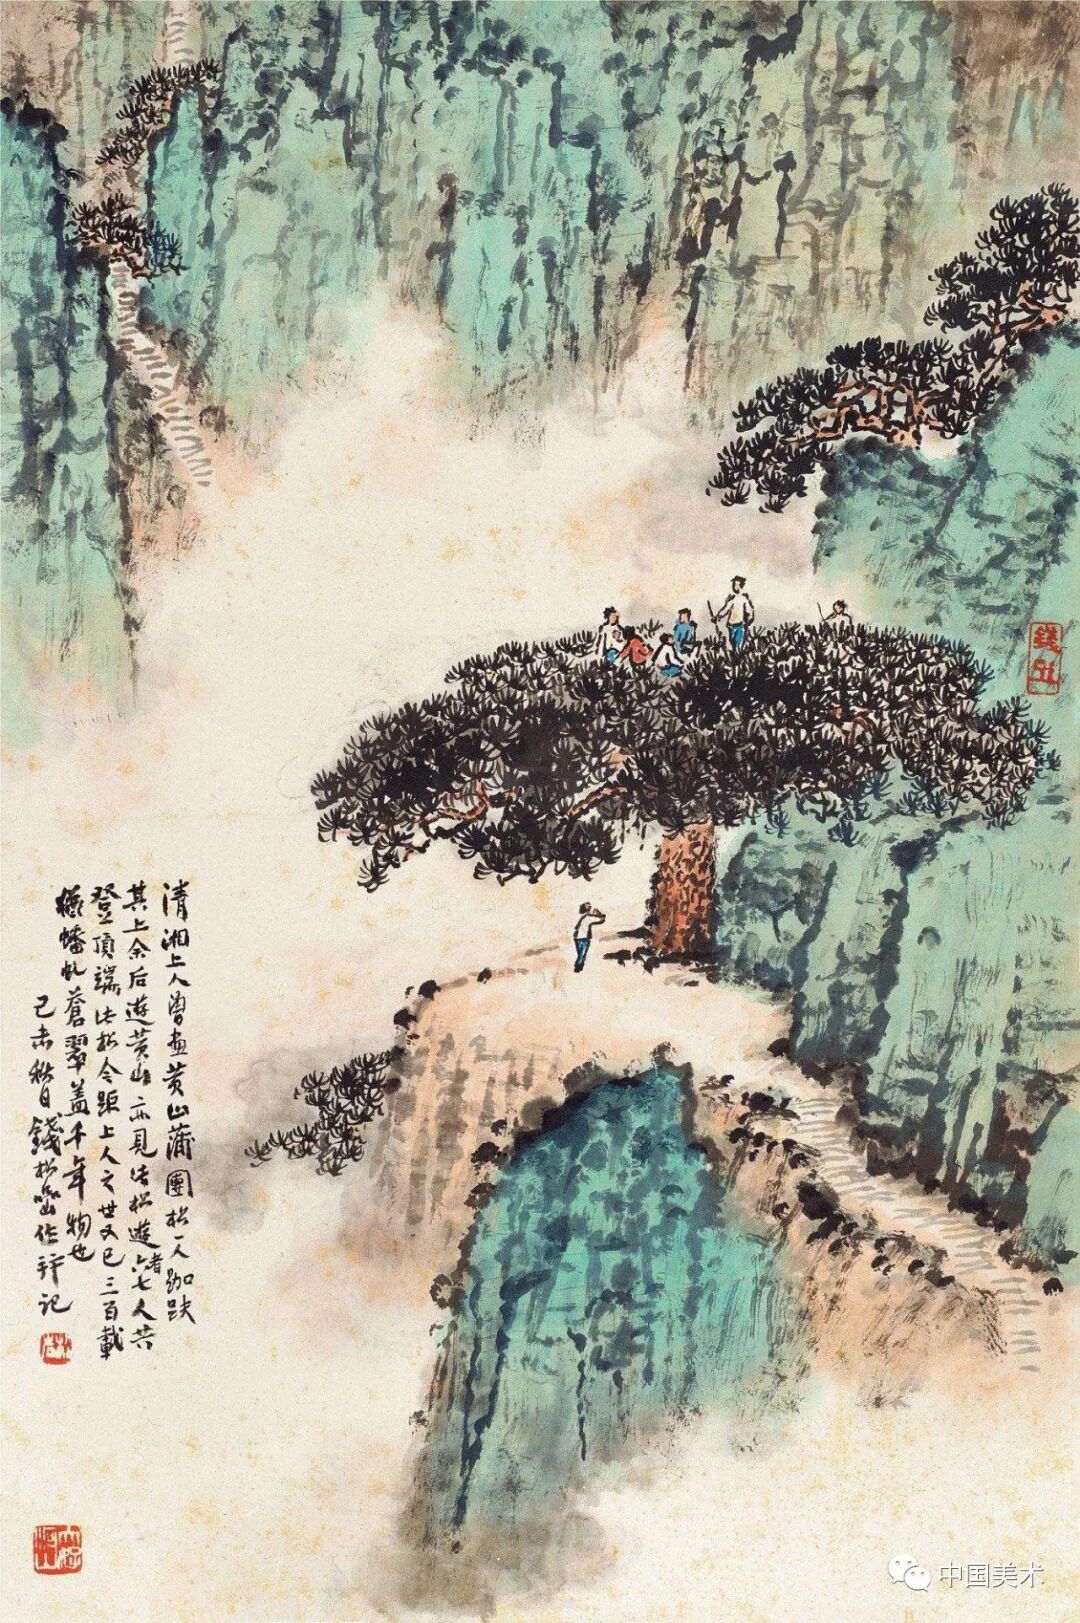 清湘上人曾画黄山蒲團松一人跏趺
其上余后遊黄山亦見此松遊者六七人共
登頂端此松今距上人之世又已三百載
猶蟠虬蒼翠盖千年物也
己未秋日錢松喦作并記
中国美术